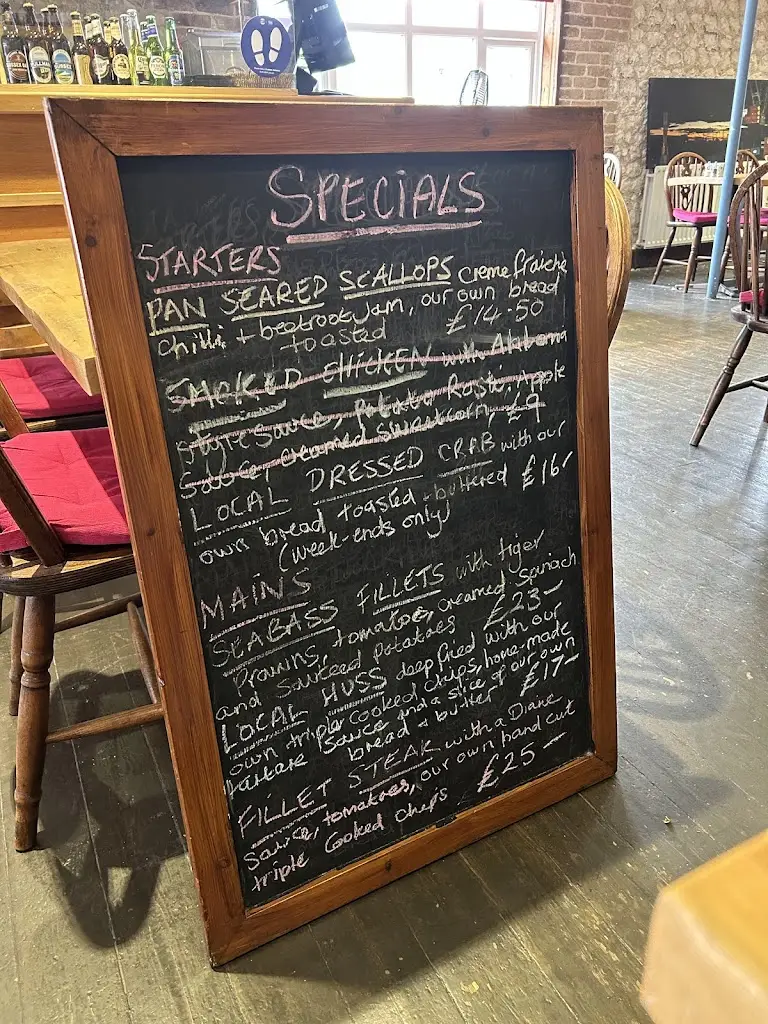 SPECIALS
STARTERS
PAN SEARED SCALLOPS creme fraiche
chilli + beetroot jam, our own bread
toasted £14.50
SMOKED CHICKEN with Alabama
style sauce, potato Rosti, Apple
Sauce, creamed sweetcorn, £9
LOCAL DRESSED CRAB with our
own bread toasted + buttered £16/-
(week-ends only)
MAINS
SEABASS FILLETS with tiger
Prawns, tomatoes, creamed spinach
and sauteed potatoes £23-
LOCAL HUSS deep fried with our
own triple cooked chips, home-made
tartare sauce and a slice of our own
bread + butter £17-
FILLET STEAK with a Diane
Sauce, tomatoes, our own hand cut
triple cooked chips £25-